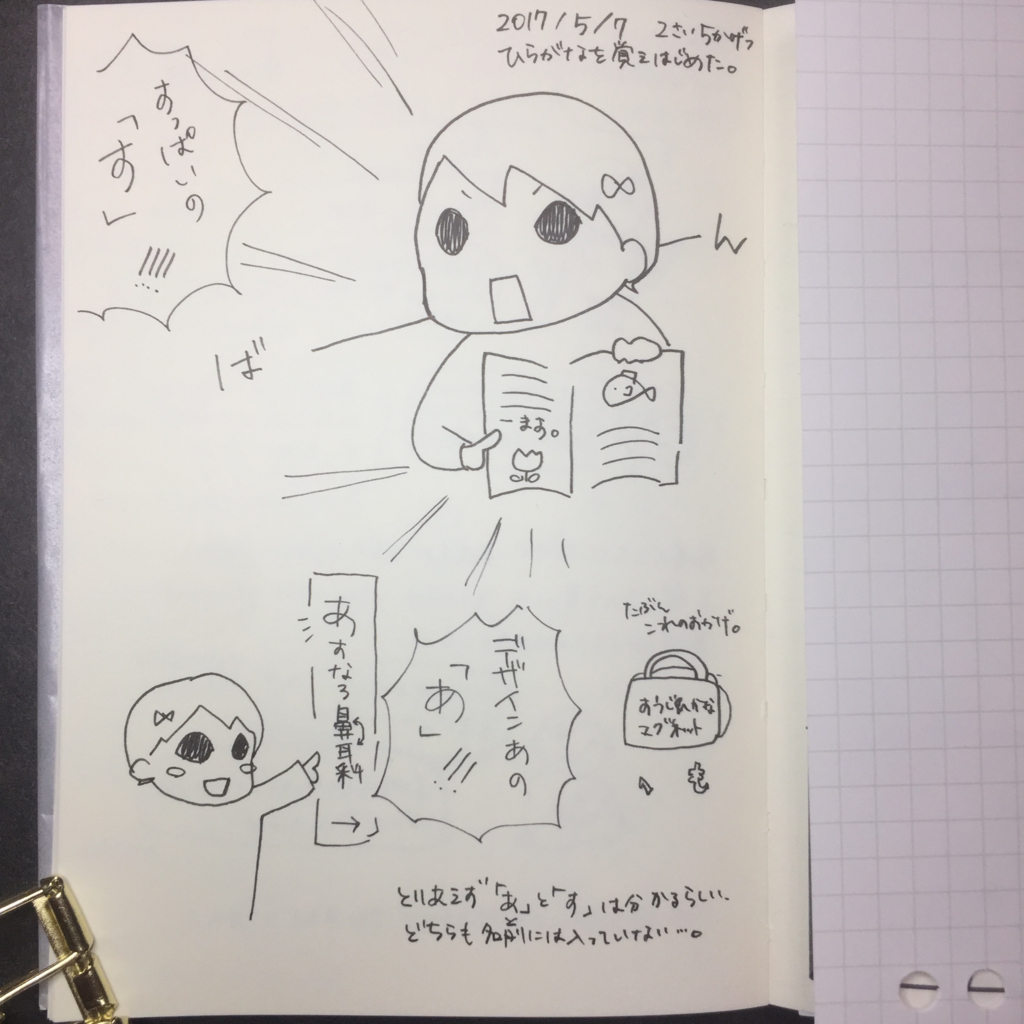 2017/5/7 2さい5かげつ
ひらがなを覚えはじめた。
すっぱいの
「す」
!!!!
ば
ーん
ーます。
あすなろ鼻耳科
→
デザインあの
「あ」
!!!
たぶん
これのおかげ。
マグネット
く
も
とりあえず「あ」と「す」は分かるらしい、
どちらも名前には入っていない…。